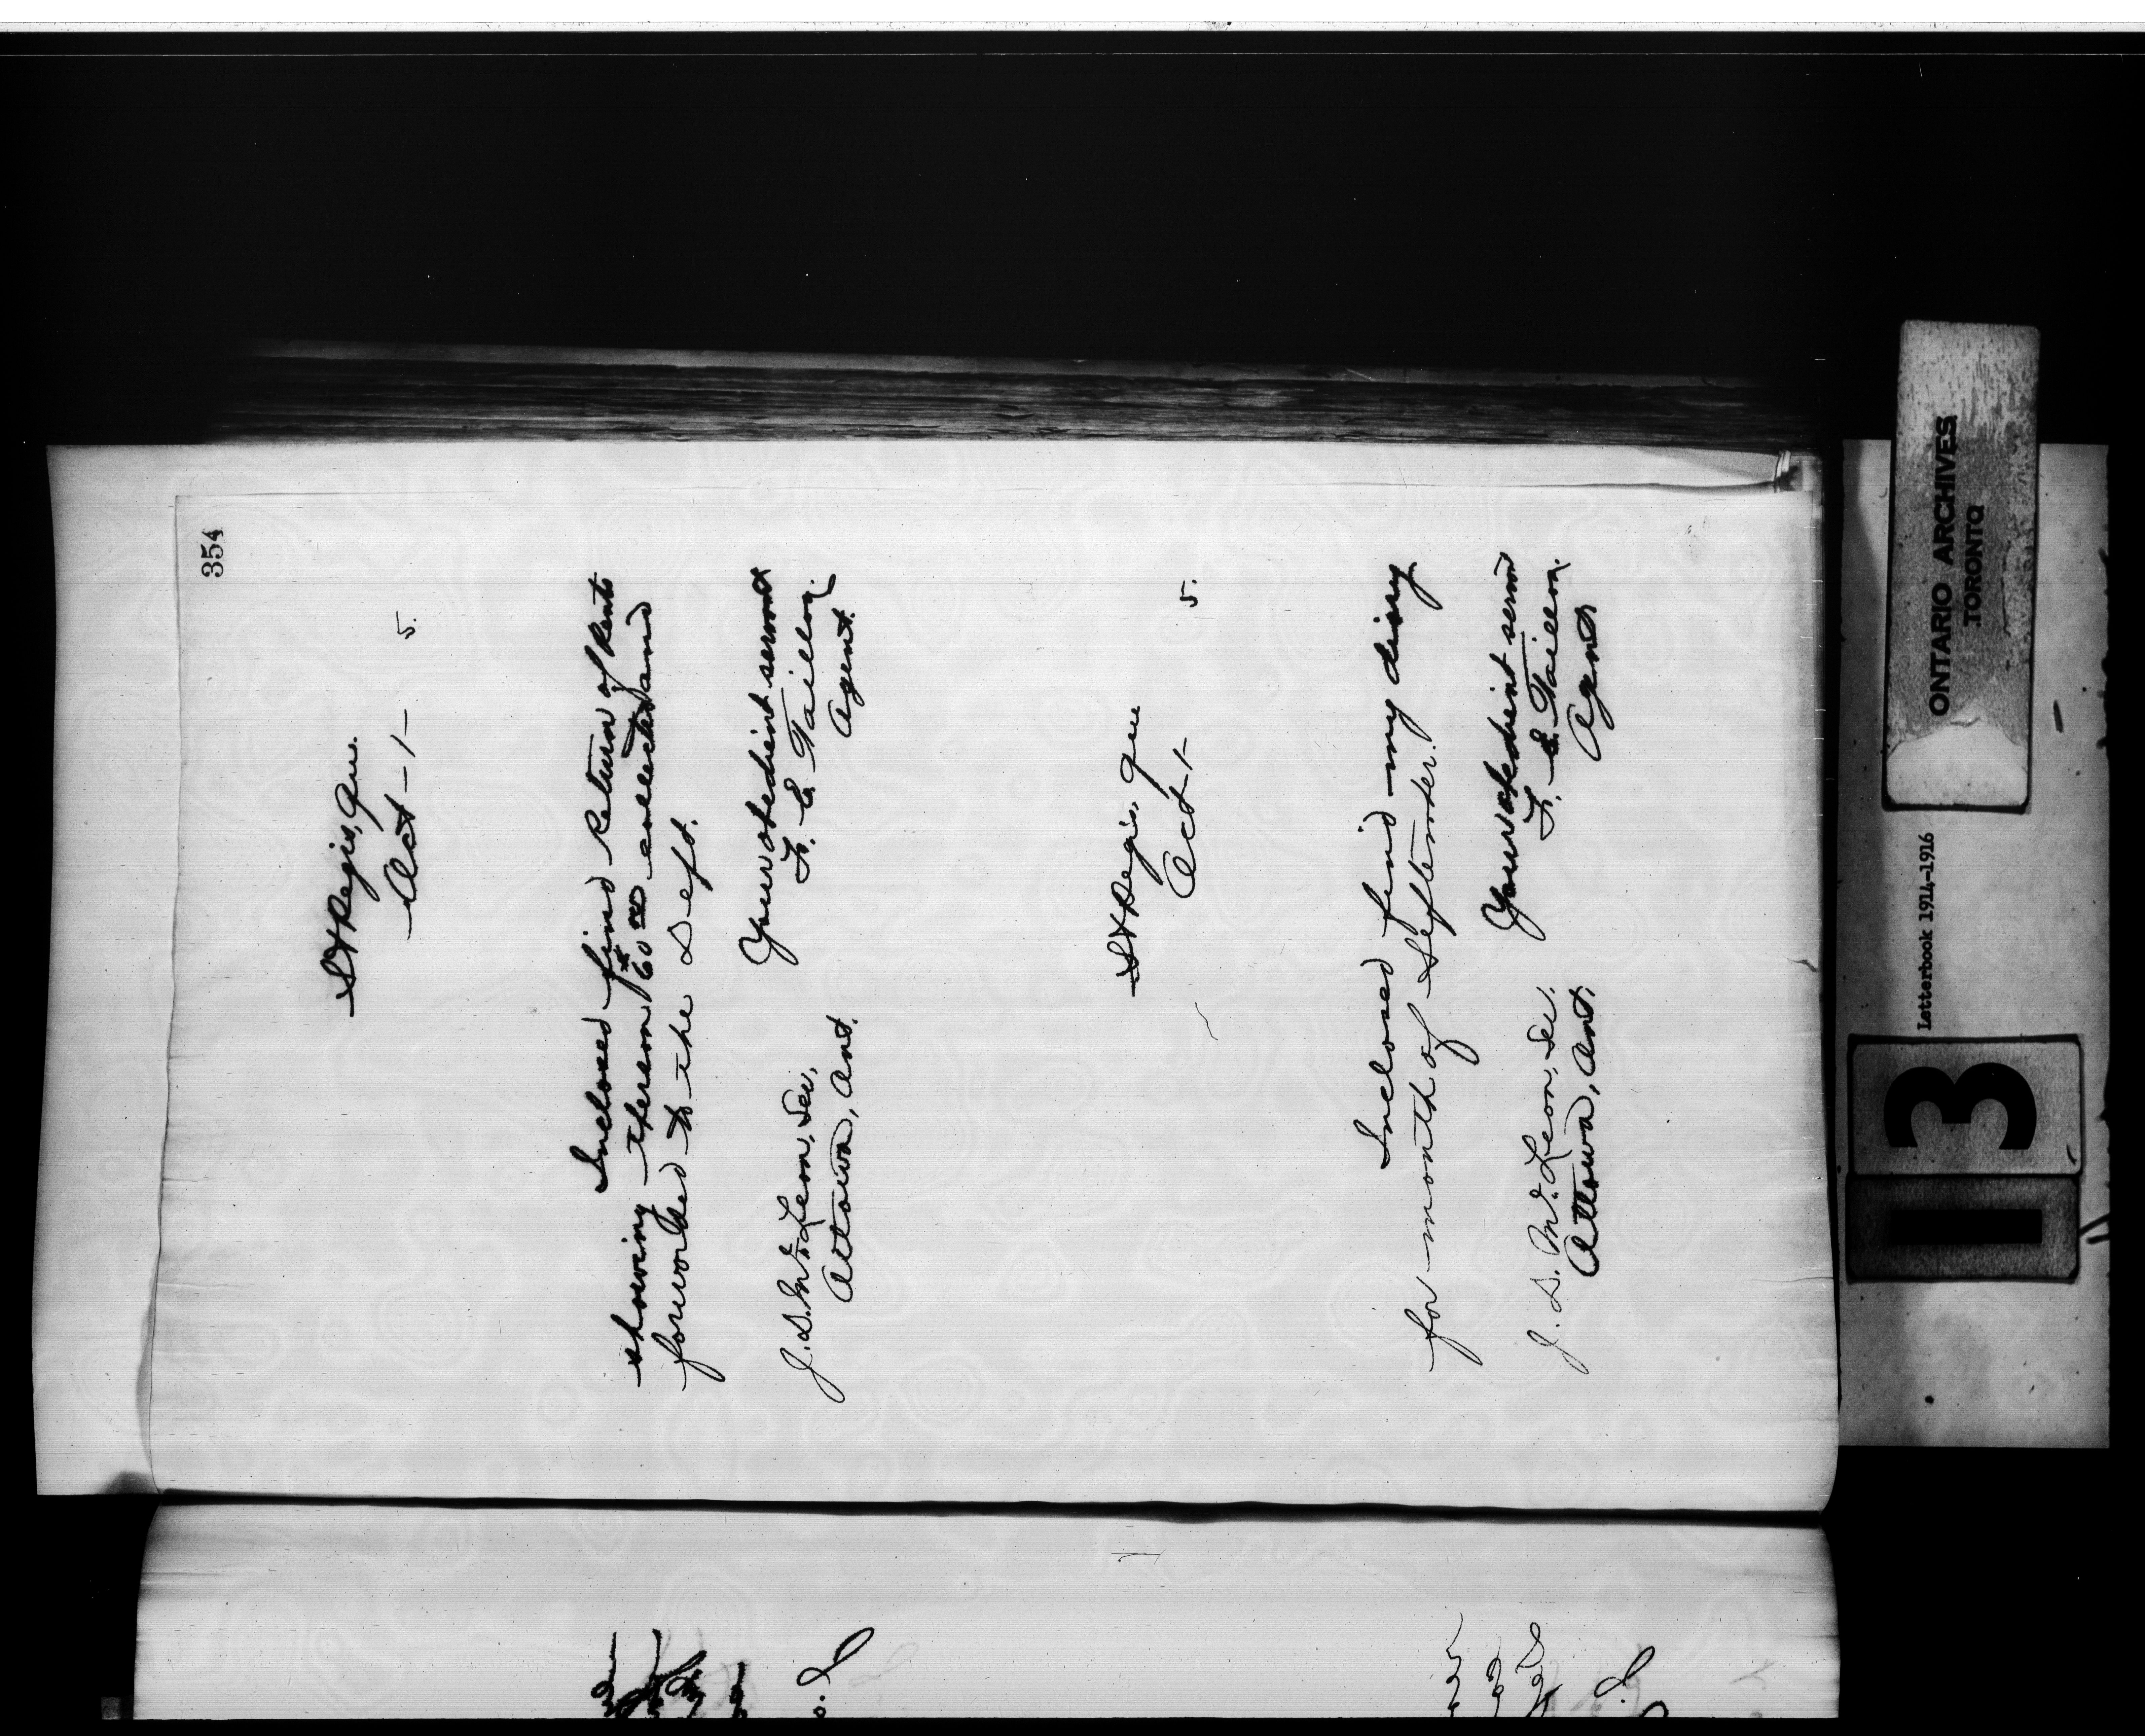 354
St Regis, Que.
Oct - 1 - 5.
Inclosed find Return of Rents
showing thereon $60.00 collected and
forworded to the Dept.
Your obedient servant
F. E. Taillon
Agent.
J. D. McLean, Sec.
Ottowa, Ont.
St Regis, Que
Oct - 1 - 5.
Inclosed find my diary
for month of September.
Your obedient servant
F. E. Taillon.
Agent
J. D. McLean, Sec.
Ottowa, Ont.
ONTARIO ARCHIVES
TORONTO
Letterbook 1914-1916
13